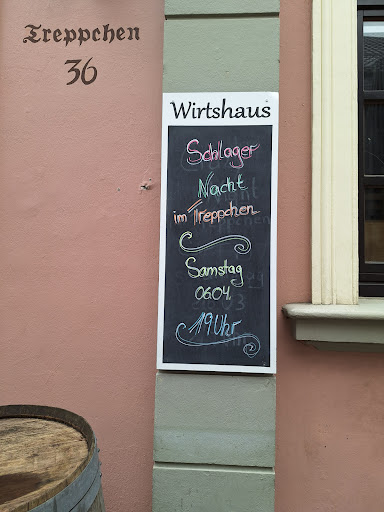 Treppchen
36
Wirtshaus
Schlager
Nacht
im Treppchen
Samstag
06.04.
19 Uhr